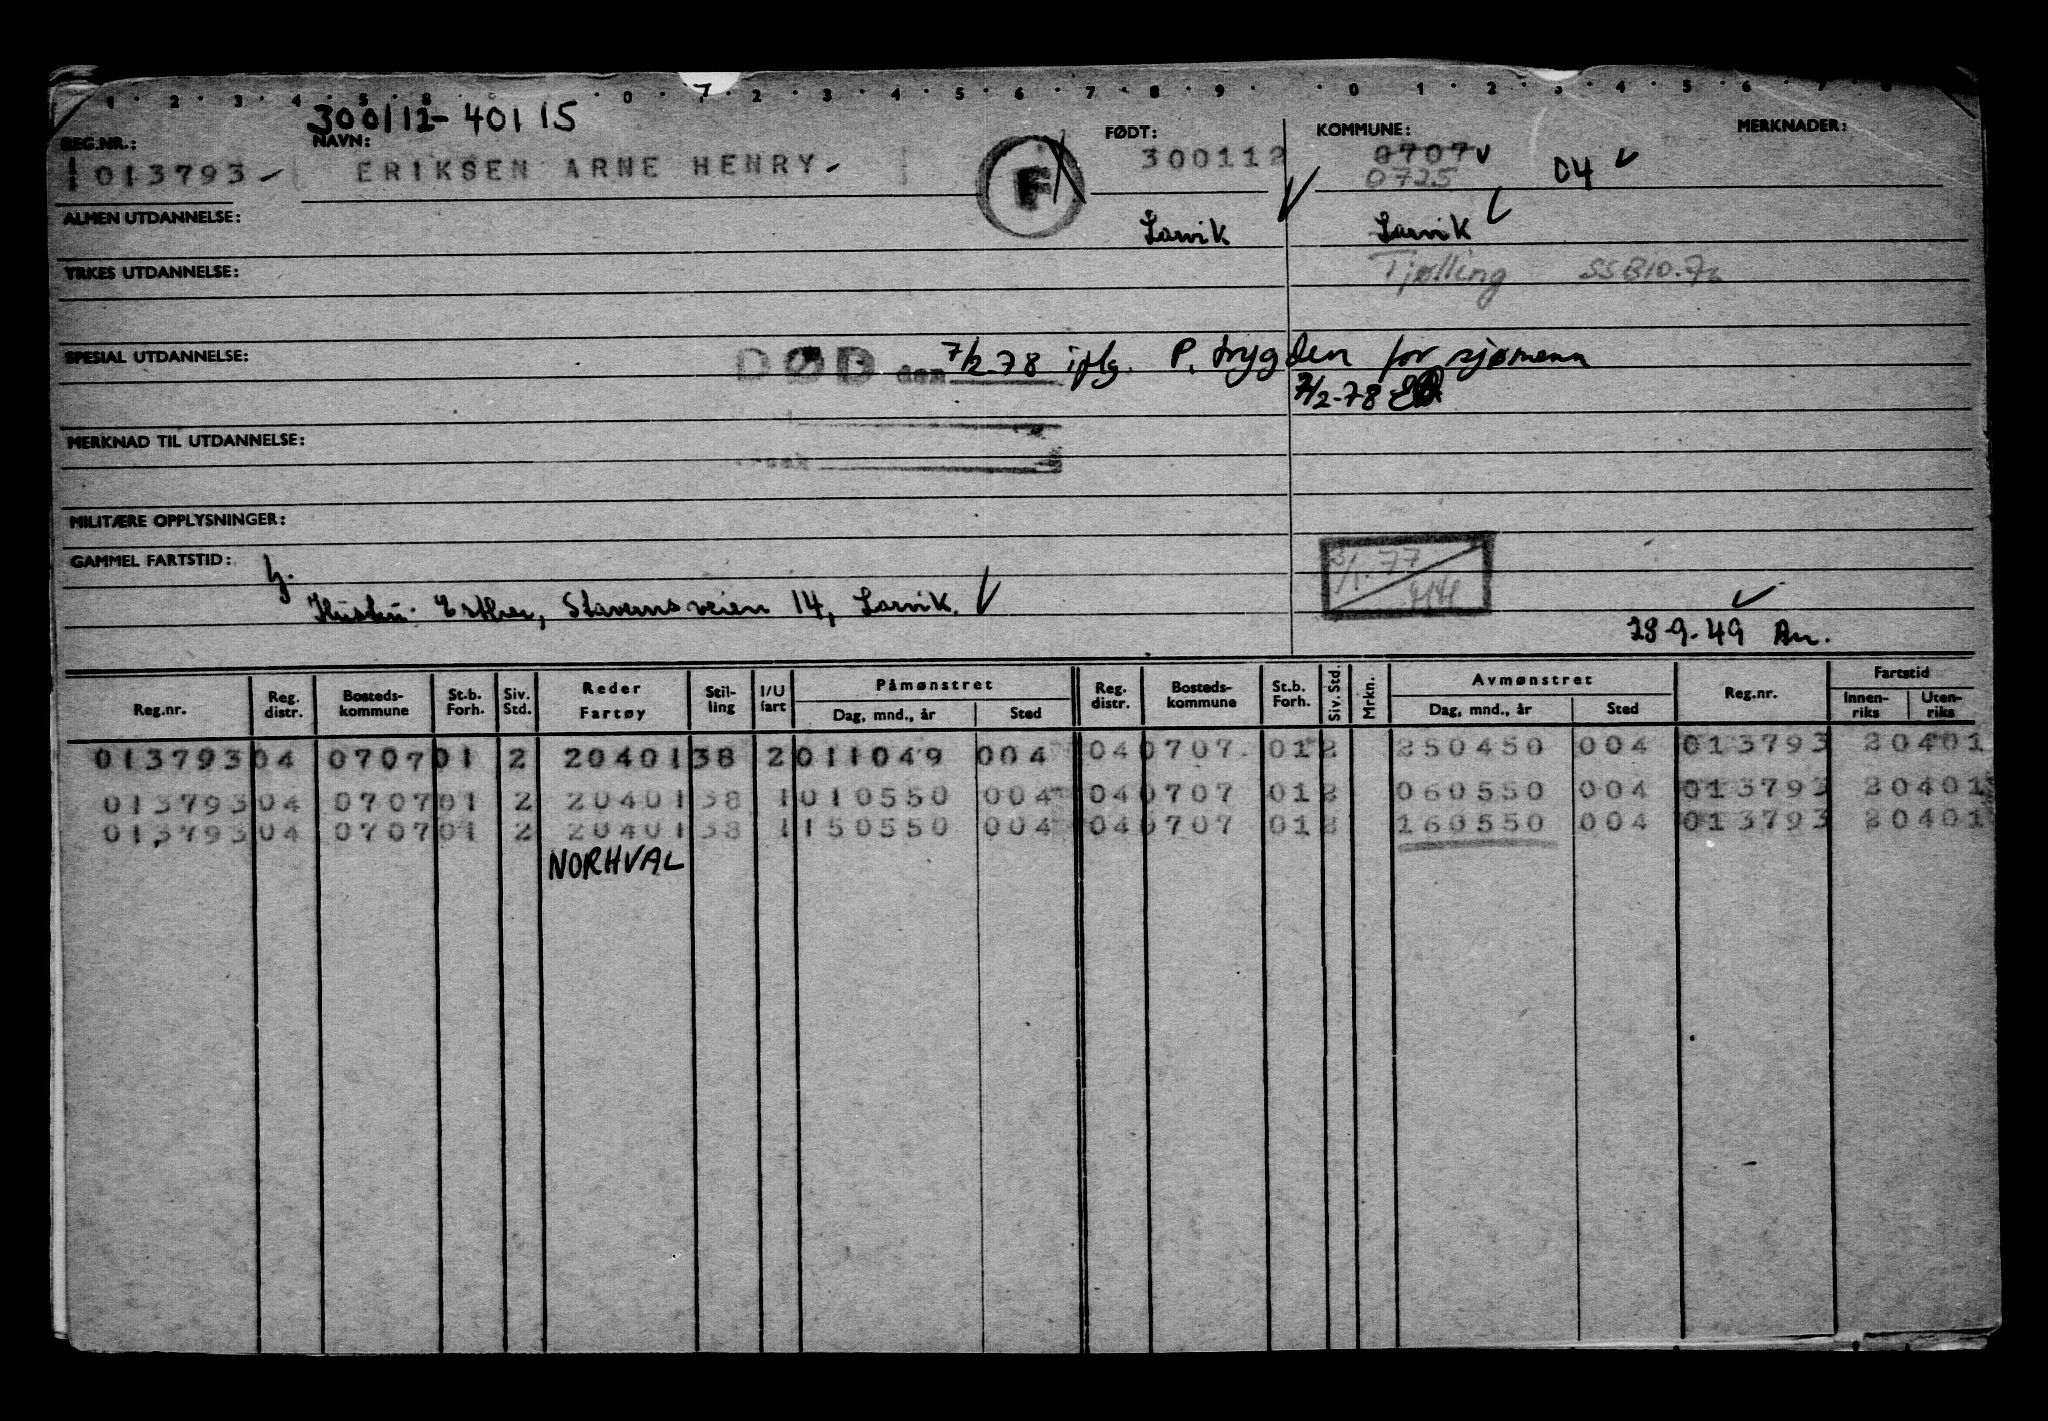 1 2 3 4 5 0 7 2 3 4 5 6 7 8 9 0 1 2 3 4 5 6 7 8
300112-40115
REG.NR.: NAVN: FØDT: KOMMUNE: MERKNADER:
013793 ERIKSEN ARNE HENRY F 300112 0707 04
0725
ALMEN UTDANNELSE: Larvik Larvik
YRKES UTDANNELSE: Tjølling SSB10.72
SPESIAL UTDANNELSE: DØD den 7/2-78 iflg. P. trygden for sjømenn
7/2-78
MERKNAD TIL UTDANNELSE:
MILITÆRE OPPLYSNINGER:
GAMMEL FARTSTID: 3/1.77 HH
Hustru Esther, Stavernsveien 14, Larvik.
28-9-49 An.
Reg.nr. Reg. distr. Bosteds-kommune St.b. Forh. Siv. Std. Reder Fartøy Stil-ling I/U fart Påmønstret Dag, mnd., år Sted Reg. distr. Bosteds-kommune St.b. Forh. Siv. Std. Mrkn. Avmønstret Dag, mnd., år Sted Reg.nr. Fartstid Innen-riks Uten-riks
013793 04 0707 01 2 20401 38 2 011049 004 04 0707 01 2 250450 004 013793 20401
013793 04 0707 01 2 20401 38 1 010550 004 04 0707 01 2 060550 004 013793 20401
013793 04 0707 01 2 20401 38 1 150550 004 04 0707 01 2 160550 004 013793 20401
NORHVAL